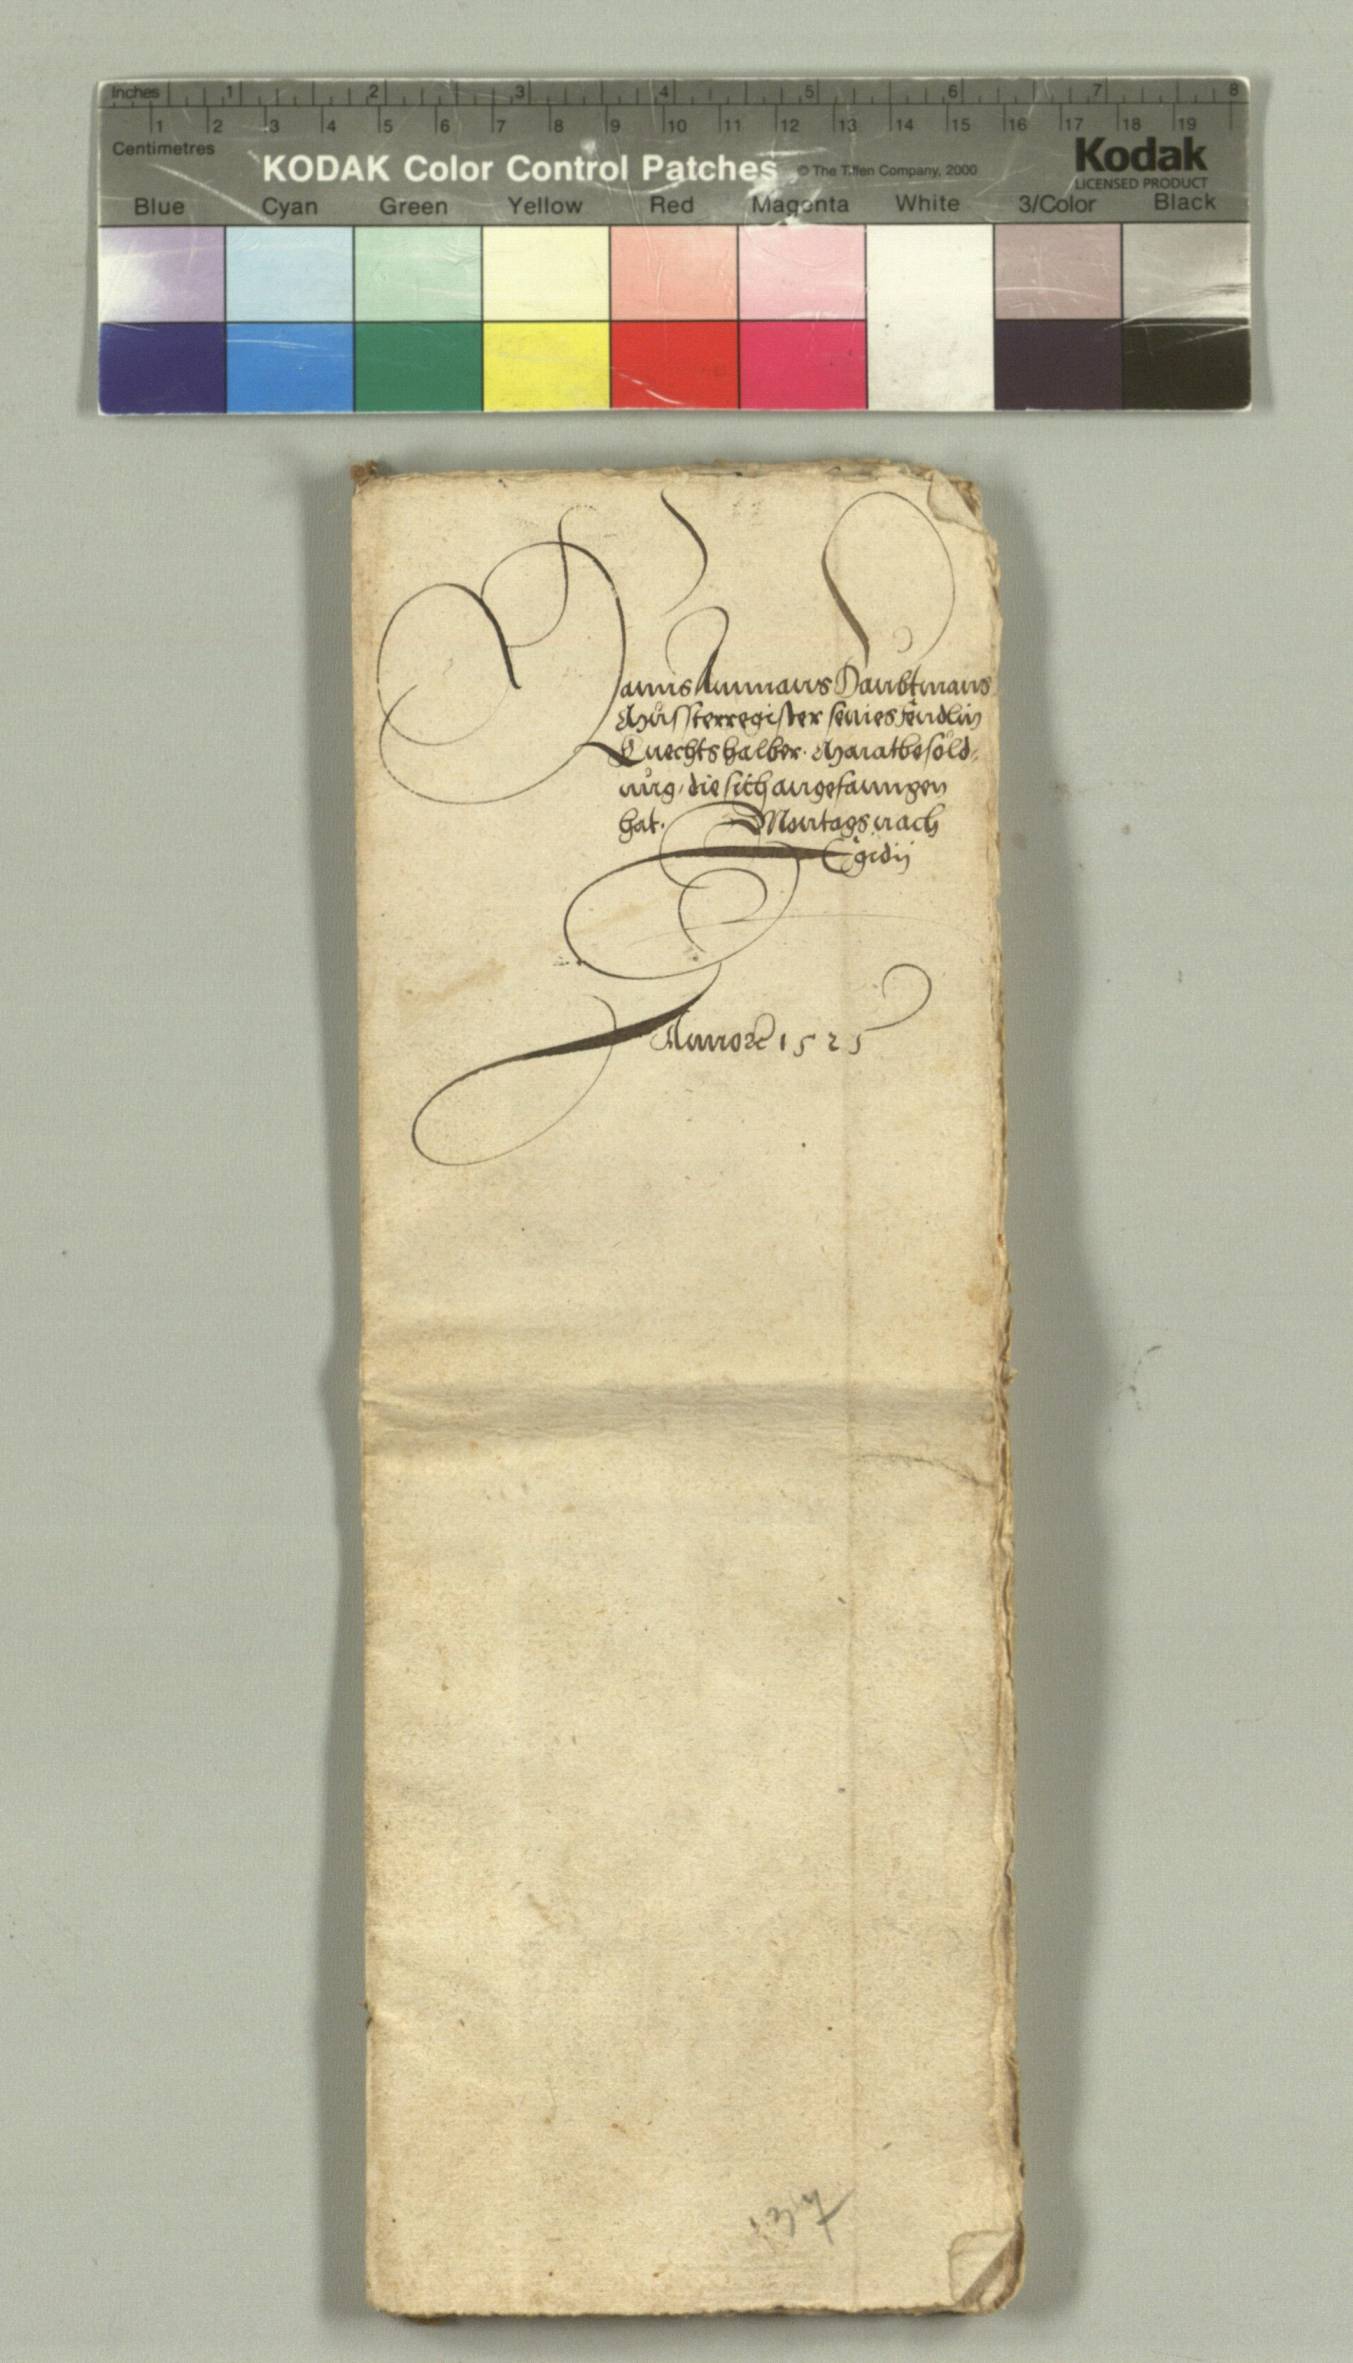 Inches 1 2 3 4 5 6 7 8
1 2 3 4 5 6 7 8 9 10 11 12 13 14 15 16 17 18 19
Centimetres
KODAK Color Control Patches © The Tiffen Company, 2000 Kodak
LICENSED PRODUCT
Blue Cyan Green Yellow Red Magenta White 3/Color Black
Hanns Ammans Haubtmans
Müssterregister seines fendlin
Knechtshalber. Monatbesold-
ung, die sich angefanngen
hat. Montags nach
Egidij
Anno ꝛc 1525